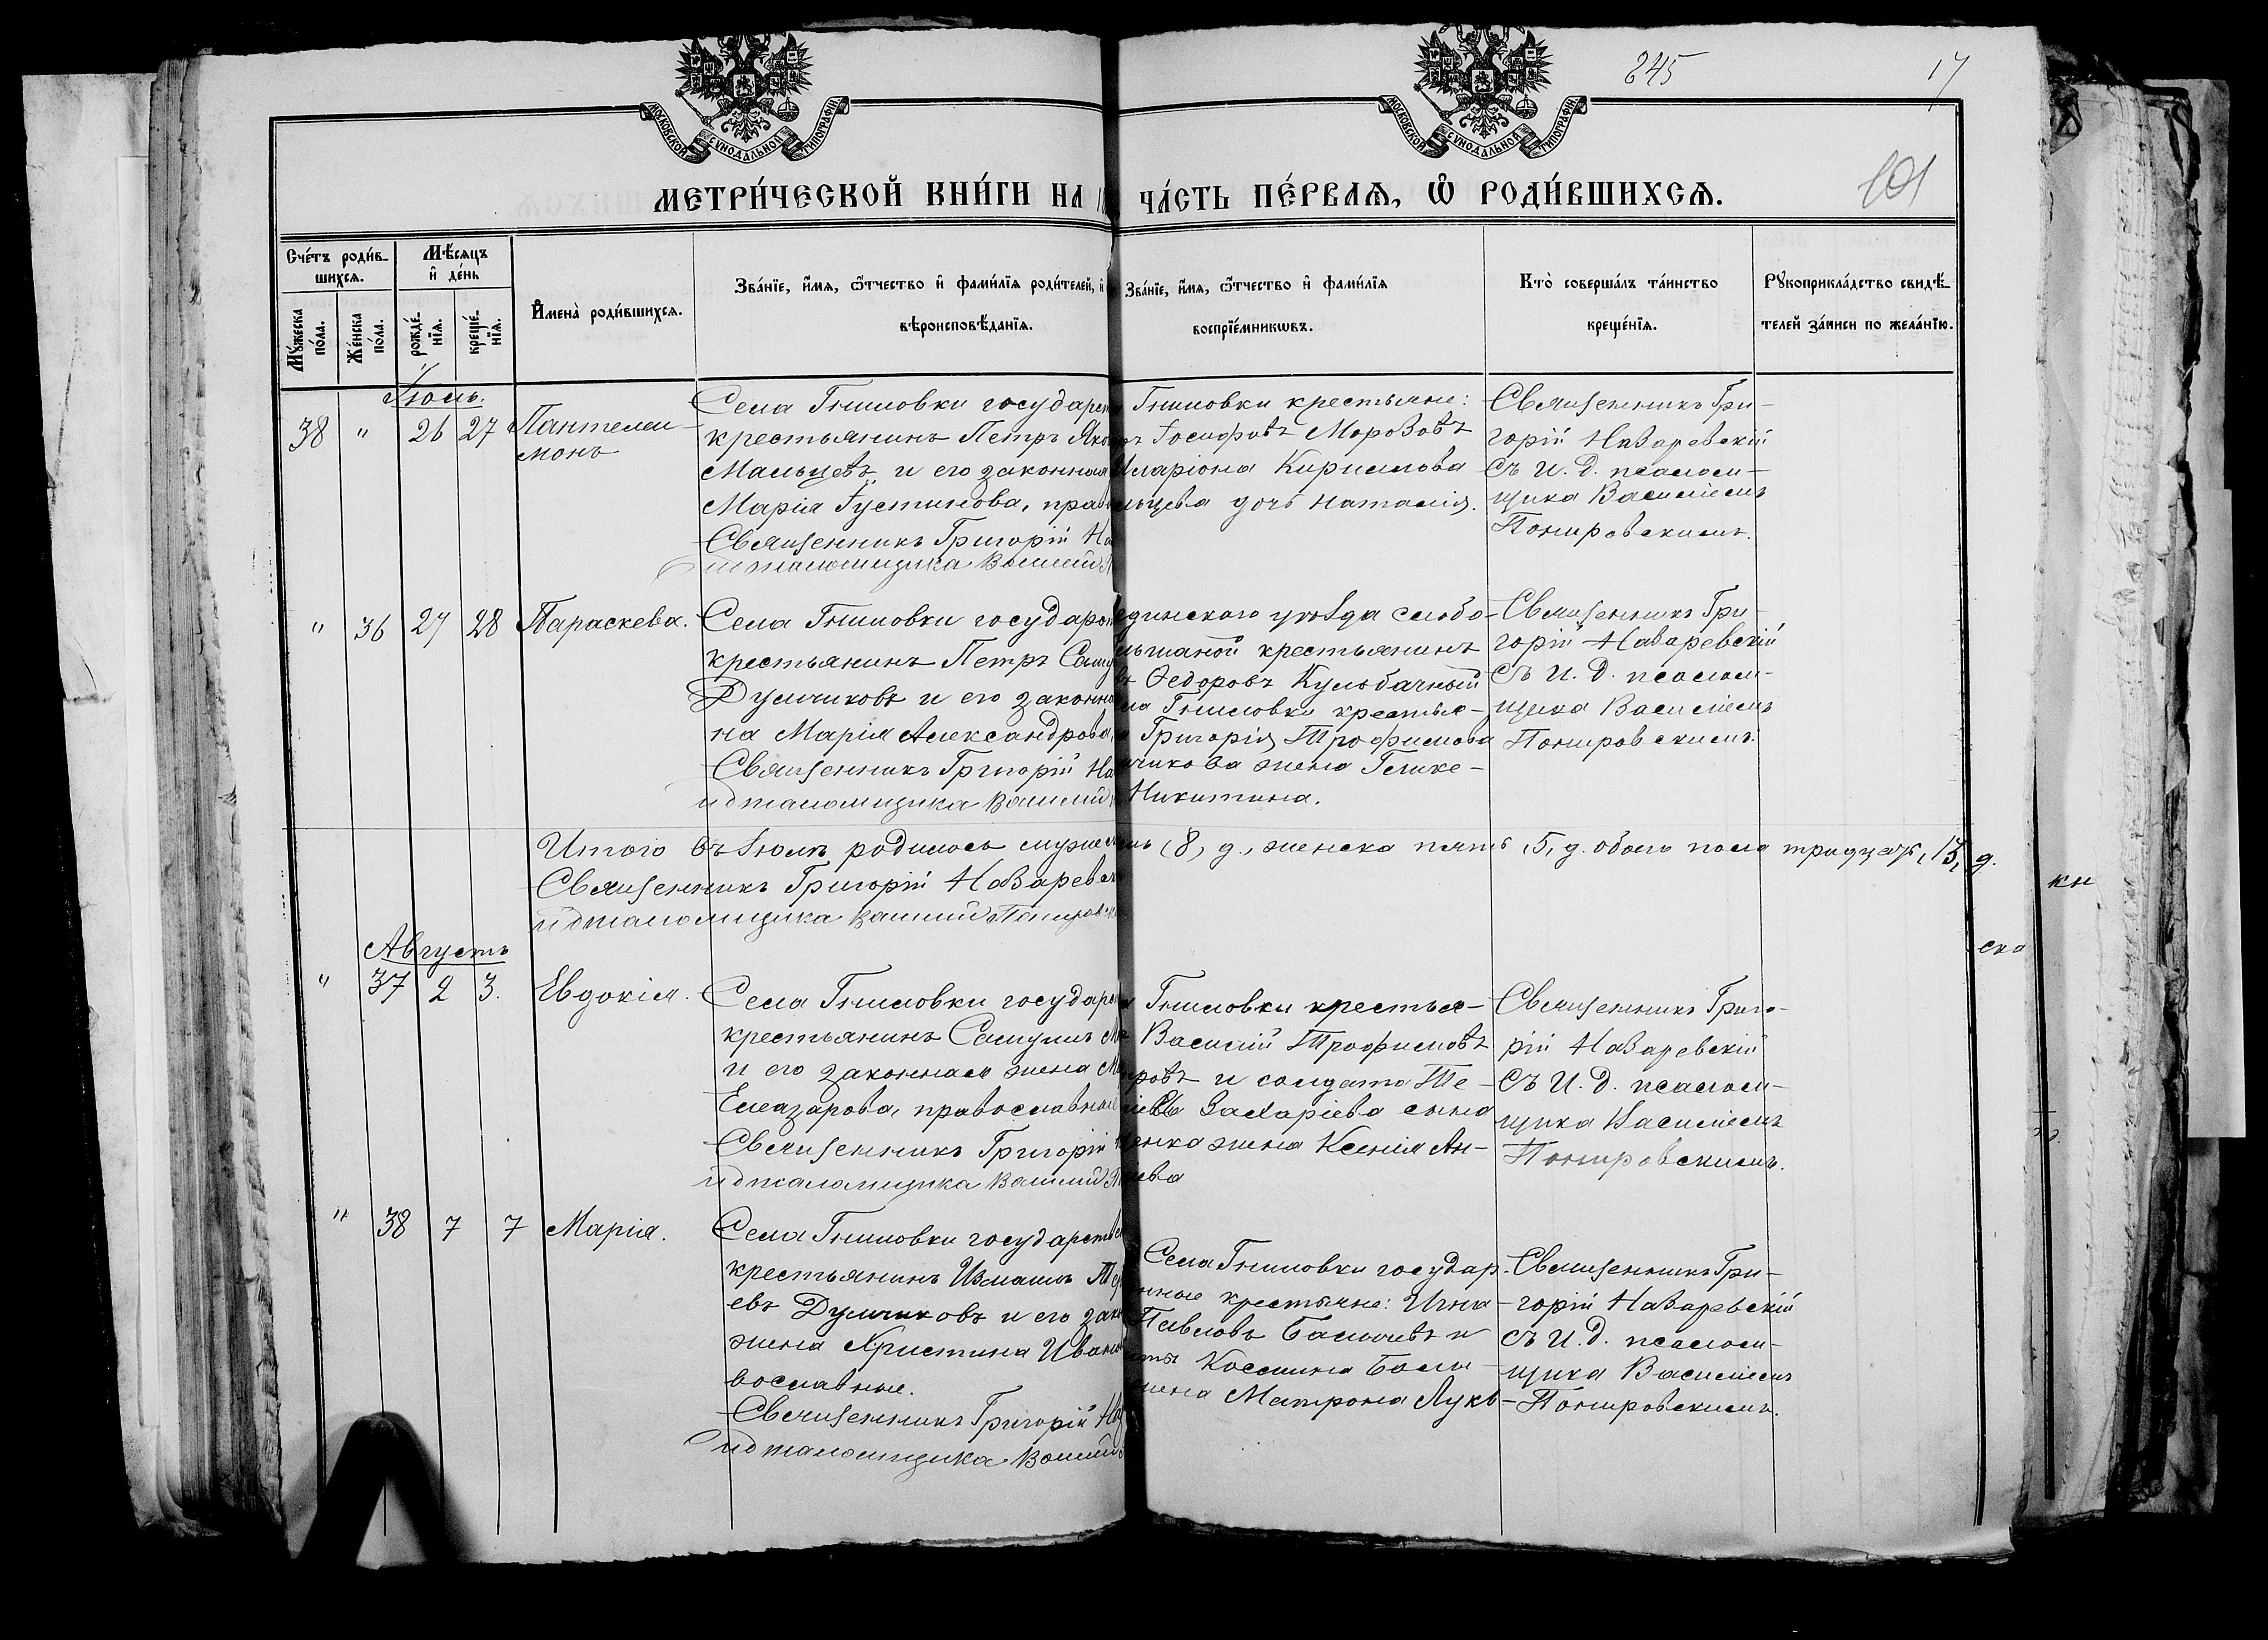 МОСКОВСКОЙ СУНОДАЛЬНОЙ ТИПОГРАФІИ
МОСКОВСКОЙ СУНОДАЛЬНОЙ ТИПОГРАФІИ
245
17
101
МЕТРИ́ЧЕСКОЙ КНИ́ГИ НА
ЧА́СТЬ ПЕ́РВАѦ, Ѡ РОДИ́ВШИХСѦ.
Сче́тъ роди́в-
шихся.
Мѣ́сяцъ
и҆ де́нь
Му́жеска по́ла.
Же́нска по́ла.
рожде́-нїя.
креще́-нїя.
И҆мена̀ роди́вшихся.
Зва́нїе, и҆́мя, ѻ҆́тчество и҆ фами́лїя роди́телей, и҆
вѣроисповѣ́данїя.
Зва́нїе, и҆́мя, ѻ҆́тчество и҆ фами́лїя
воспрїе́мниковъ.
Кто̀ соверша́лъ та́инство
креще́нїя.
Рукоприкла́дство свидѣ́-
телей за́писи по жела́нїю.
Іюль.
38 " 26 27 Пантелеи-
монъ
Села Гниловки государст
крестьянинъ Петръ Яко
Мальцевъ и его законная
Марія Іустинова, прав
Священникъ Григорій На
И д псаломщика Василій П
Гниловки крестьяне:
Іосифовъ Морозовъ
Иларіона Кирилова
льцева дочь Наталія.
Священникъ Гри-
горій Назаревскій
съ И. Д. псалом-
щика Василіемъ
Понировскимъ.
" 36 27 28 Параскева.
Села Гниловки государст
крестьянинъ Петръ Саму
Думчиковъ и его законна
на Марія Александрова,
Священникъ Григорій На
И д псаломщика Василій
динского уѣзда слобо-
льшаной крестьянинъ
въ Ѳедоровъ Кулобачный
ла Гниловки крестья-
Григорія Трофимова
чикова жена Глике-
Никитина.
Священникъ Гри-
горій Назаревскій
съ И. Д. псалом-
щика Василіемъ
Понировскимъ.
Итого въ Іюлѣ родилось мужеск
мь (8) д., женска пять (5) д. обоего пола тринадцать (13) д.
Священникъ Григорій Назаревск
И д псаломщика Василій Понировск
Августъ
" 37 2 3. Евдокія.
Села Гниловки государст
крестьянинъ Самуилъ
и его законная жена
Елеазарова, православные
Священникъ Григорій
И д псаломщика Василій П
Гниловки крестья-
Василій Трофимовъ
ровъ и солдата Те-
Захаріева сына
енка жена Ксенія Ан-
ева
Священникъ Григо-
рій Назаревскій
съ И. Д. псалом-
щика Василіемъ
Понировскимъ.
" 38 7 7 Марія.
Села Гниловки государствен
крестьянинъ Измаилъ
евъ Думчиковъ и его зако
жена Христина Ивано
вославные.
Священникъ Григорій Наз
И д псаломщика Василій
Села Гниловки государ-
нные крестьяне: Игна-
Павловъ Бальчевъ и
Косьмина Баль-
жена Матрона Лукь-
Священникъ Гри-
горій Назаревскій
съ И. Д. псалом-
щика Василіемъ
Понировскимъ.
кн
ска